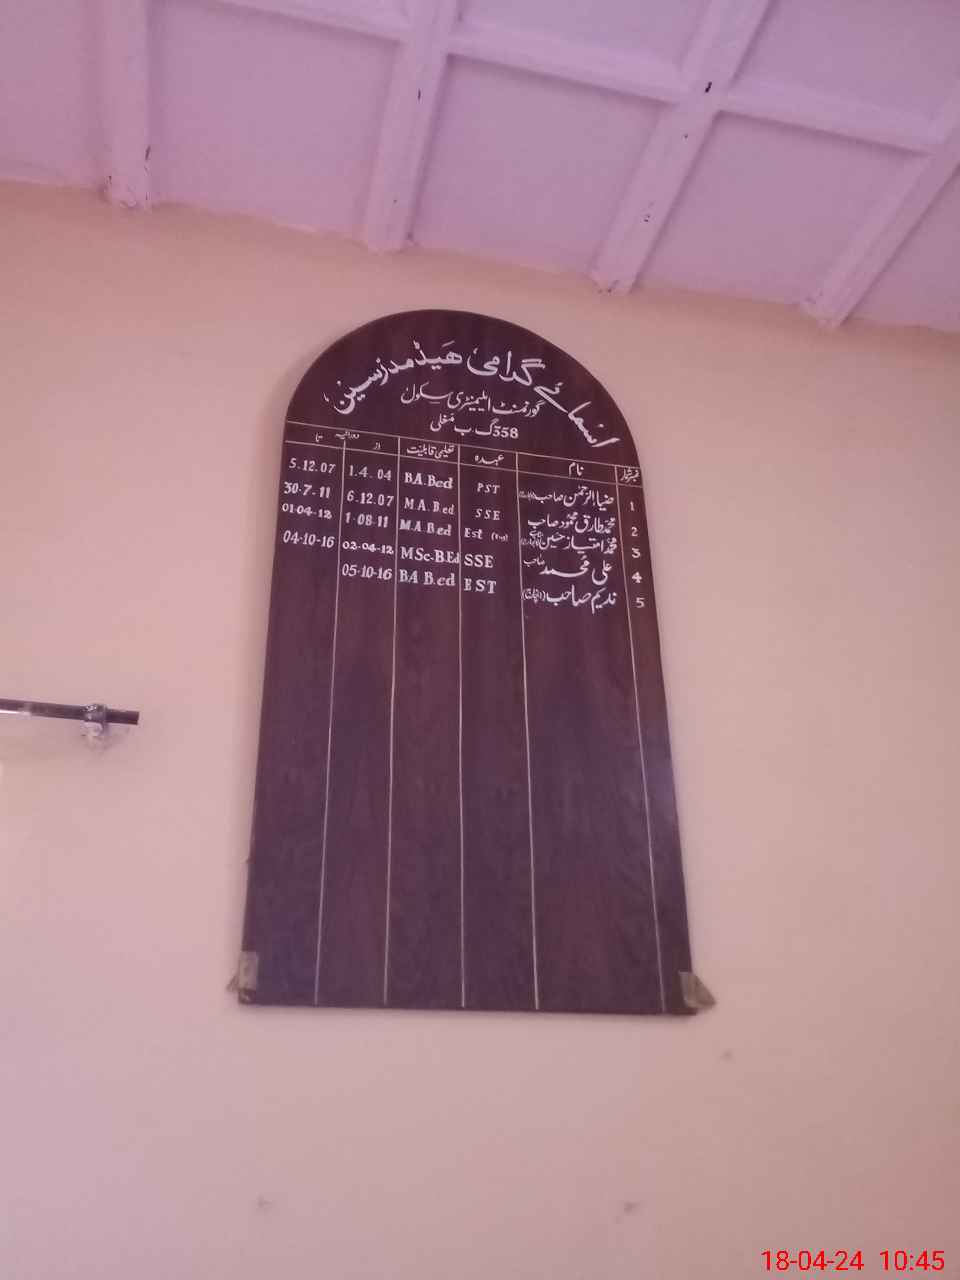 اسمائے گرامی ہیڈمدرسین
گورنمنٹ ایلیمنٹری سکول
358 گ ب مغلی
نمبر شمار نام عہدہ تعلیمی قابلیت دورانیہ از تا
1 ضیاالرحمٰن صاحب PST BA.Bed 1.4.04 5.12.07
2 محمد طارق محمود صاحب SSE M.A.Bed 6.12.07 30-7-11
3 محمد امتیاز حسین Est M.A.Bed 1-08-11 01-04-12
4 علی محمد صاحب SSE MSc-B.Ed 02-04-12 04-10-16
5 ندیم صاحب (انچارج) EST BA B.ed 05-10-16
18-04-24 10:45